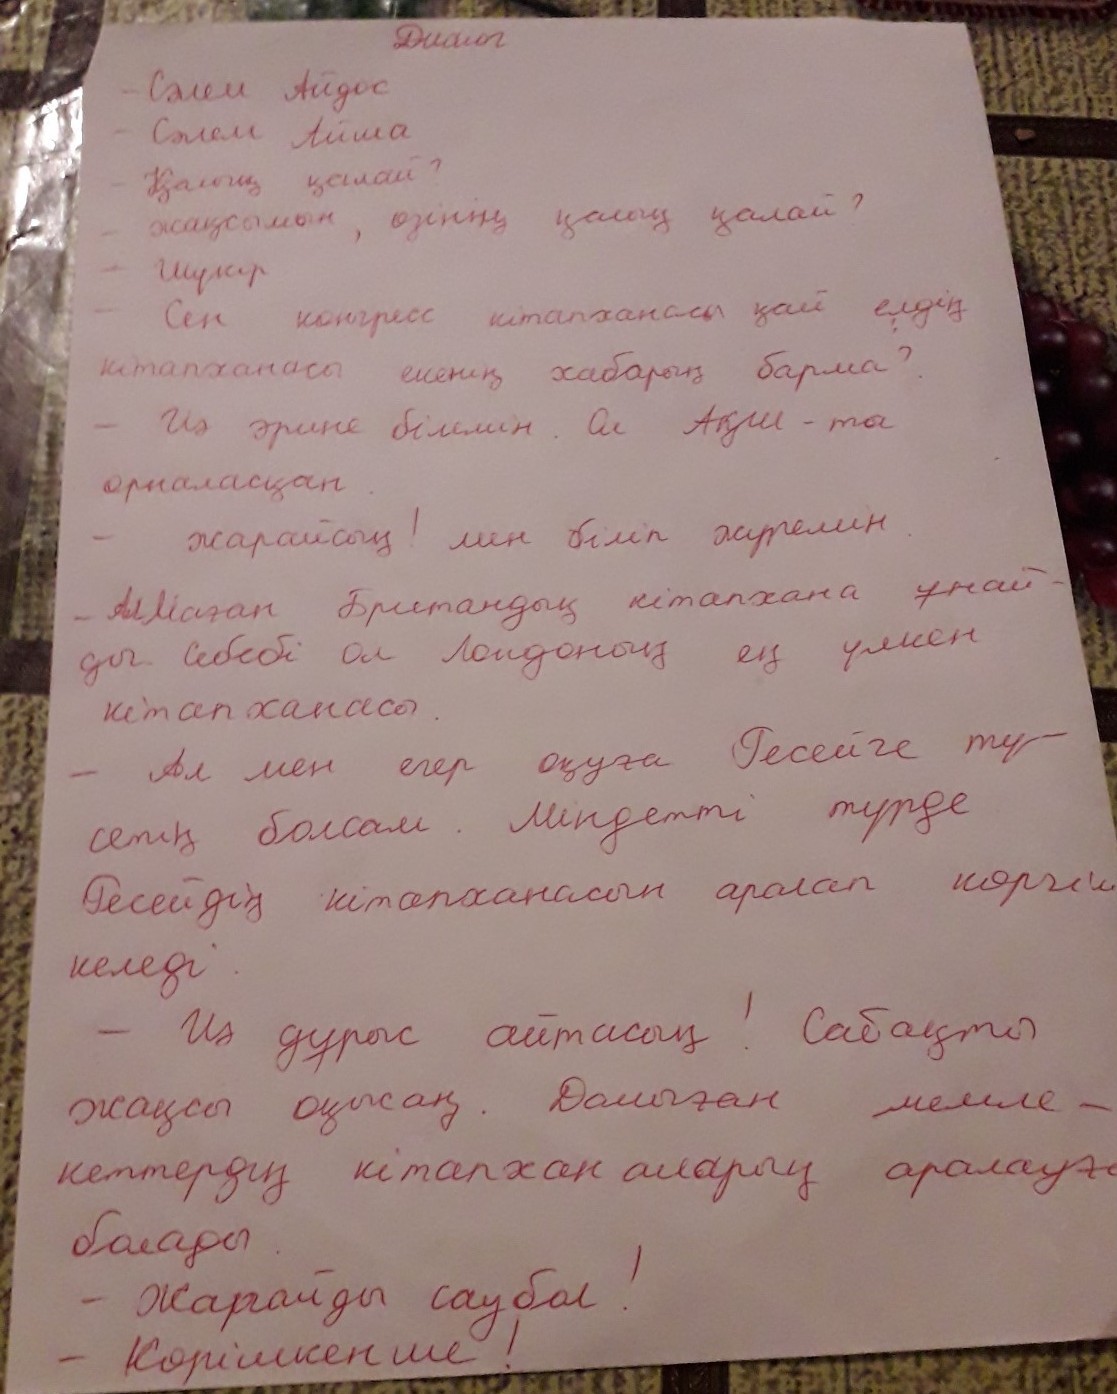 Диалог
- Сәлем Айдос
- Сәлем Айша
- Қалың қалай?
- жақсымын, өзіңнің қалың қалай?
- Шүкір
- Сен конгресс кітапханасы қай елдің
кітапханасы екенің хабарың барма?
- Иә әрине білемін. Ол АҚШ-та
орналасқан.
- жарайсың! мен біліп жүремін.
- Ал Маған Британдық кітапхана ұнай-
ды. Себебі ол Лондоның ең үлкен
кітапханасы.
- Ал мен егер оқуға Ресейге тү-
сетің болсам. Міндетті түрде
Ресейдің кітапханасын аралап көргім
келеді.
- Иә дұрыс айтасың! Сабақты
жақсы оқысаң. Дамыған мемле-
кеттердің кітапханаларың аралауға
болады.
- Жарайды саубол!
- Көрімкенше!